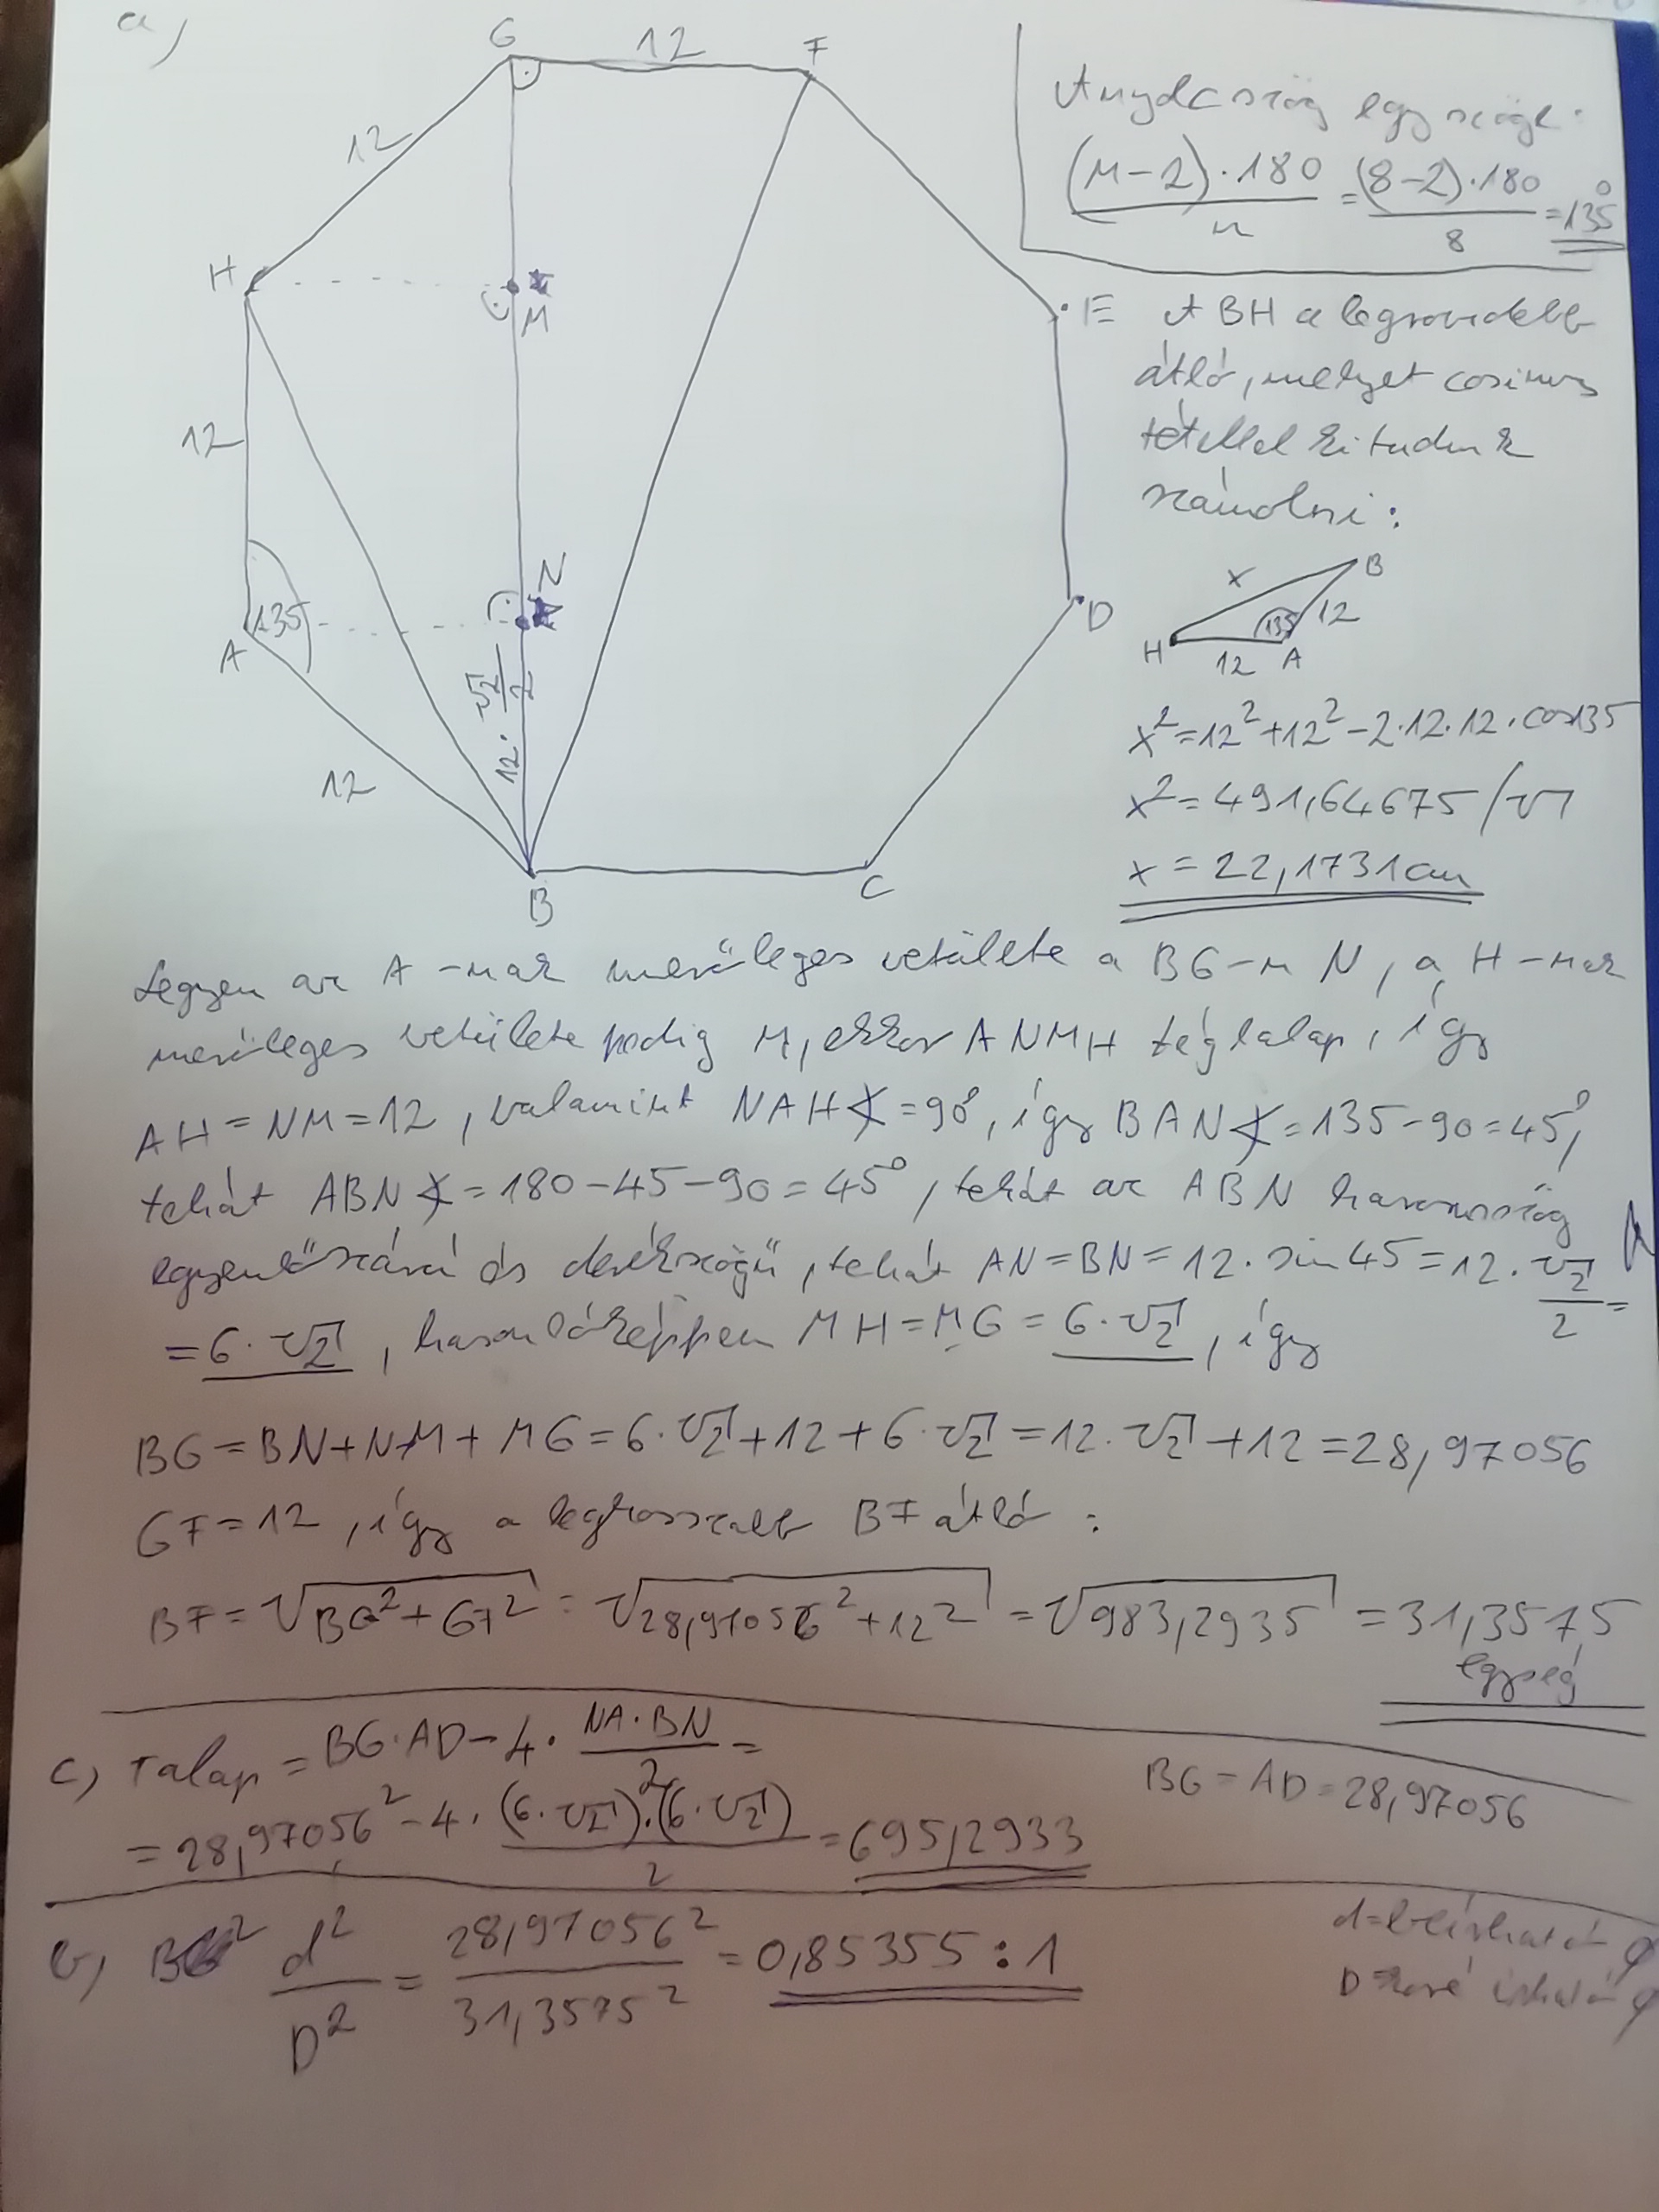 a)
G
12
F
12
H
M
E
12
135
A
N
12 · √2/2
12
B
C
D
A nyolcszög egy szöge:
(n-2)·180/n = (8-2)·180/8 = 135°
A BH a legrövidebb
átló, melyet cosinus
tétellel ki tudunk
számolni:
x
B
135
12
H
12
A
x²=12²+12²-2·12·12·cos135
x²=491,64675 /√
x = 22,1731cm
Legyen az A-nak merőleges vetülete a BG-n N, a H-nak
merőleges vetülete pedig M, ekkor ANMH téglalap, így
AH=NM=12, valamint NAH∢=90°, így BAN∢=135-90=45°,
tehát ABN∢=180-45-90=45°, tehát az ABN háromszög
egyenlőszárú és derékszögű, tehát AN=BN=12·sin45=12·√2/2=
=6·√2, hasonlóképpen MH=MG=6·√2, így
BG=BN+NM+MG=6·√2+12+6·√2=12·√2+12=28,97056
GF=12, így a leghosszabb BF átló:
BF=√BG²+GF² = √28,97056²+12² = √983,2935 = 31,3575
egység
c) Talap = BG·AD-4·NA·BN/2 =
BG=AD=28,97056
= 28,97056²-4·(6·√2)·(6·√2)/2 = 695,2933
b) d²/D² = 28,97056²/31,3575² = 0,85355:1
d=beírható
D=köré írható